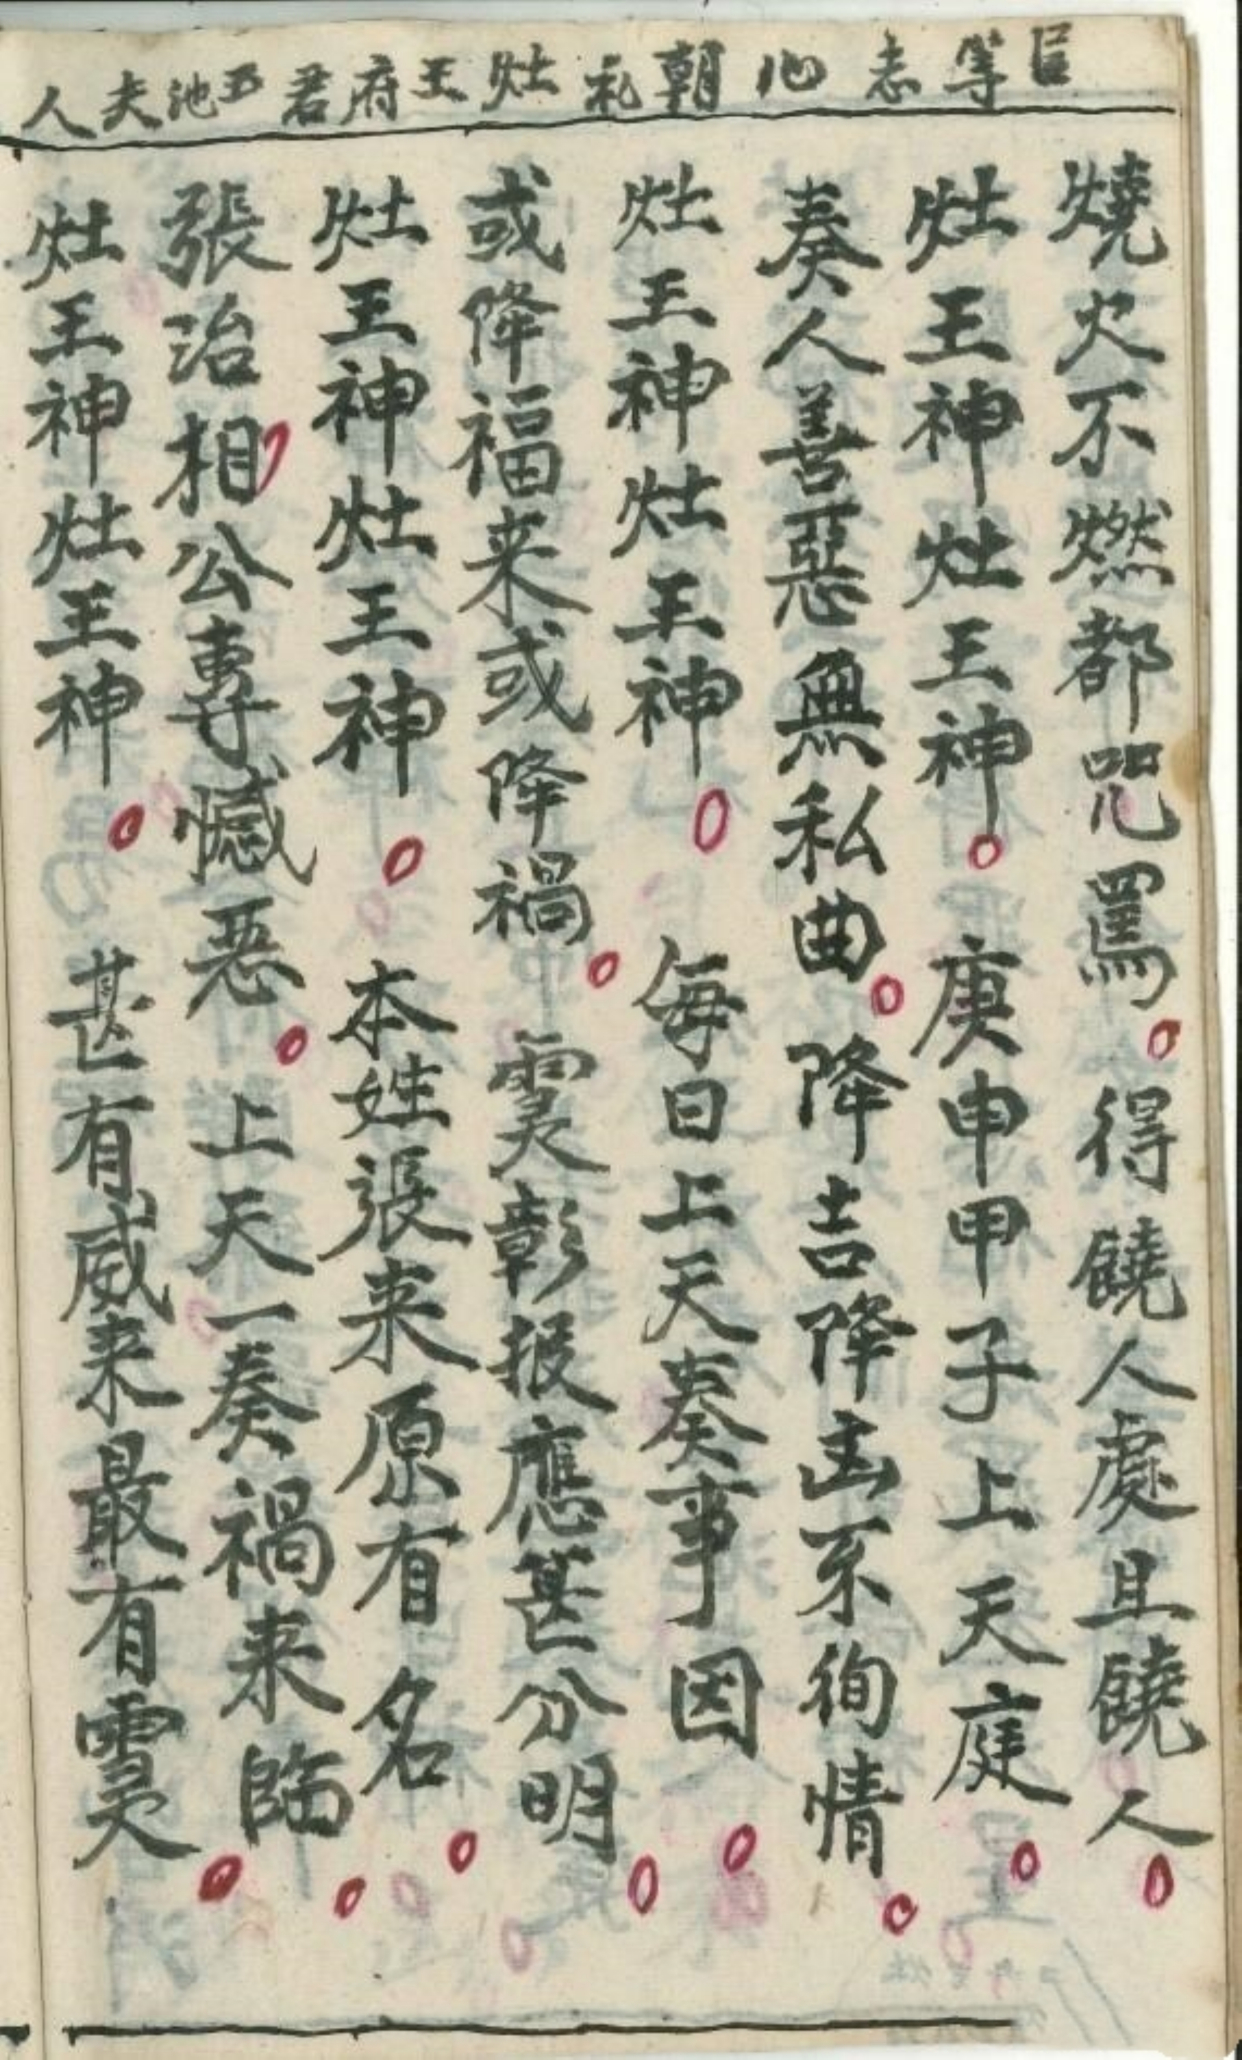 臣等志心朝礼灶王府君五池夫人
燒火不燃都咒罵得饒人處且饒人
灶王神灶王神庚申甲子上天庭
奏人善惡無私曲降吉降凶不徇情
灶王神灶王神每日上天奏事因
或降福来或降禍灵彰报應甚分明
灶王神灶王神本姓張来原有名
張治相公專憾恶上天一奏禍来臨
灶王神灶王神甚有威来最有灵